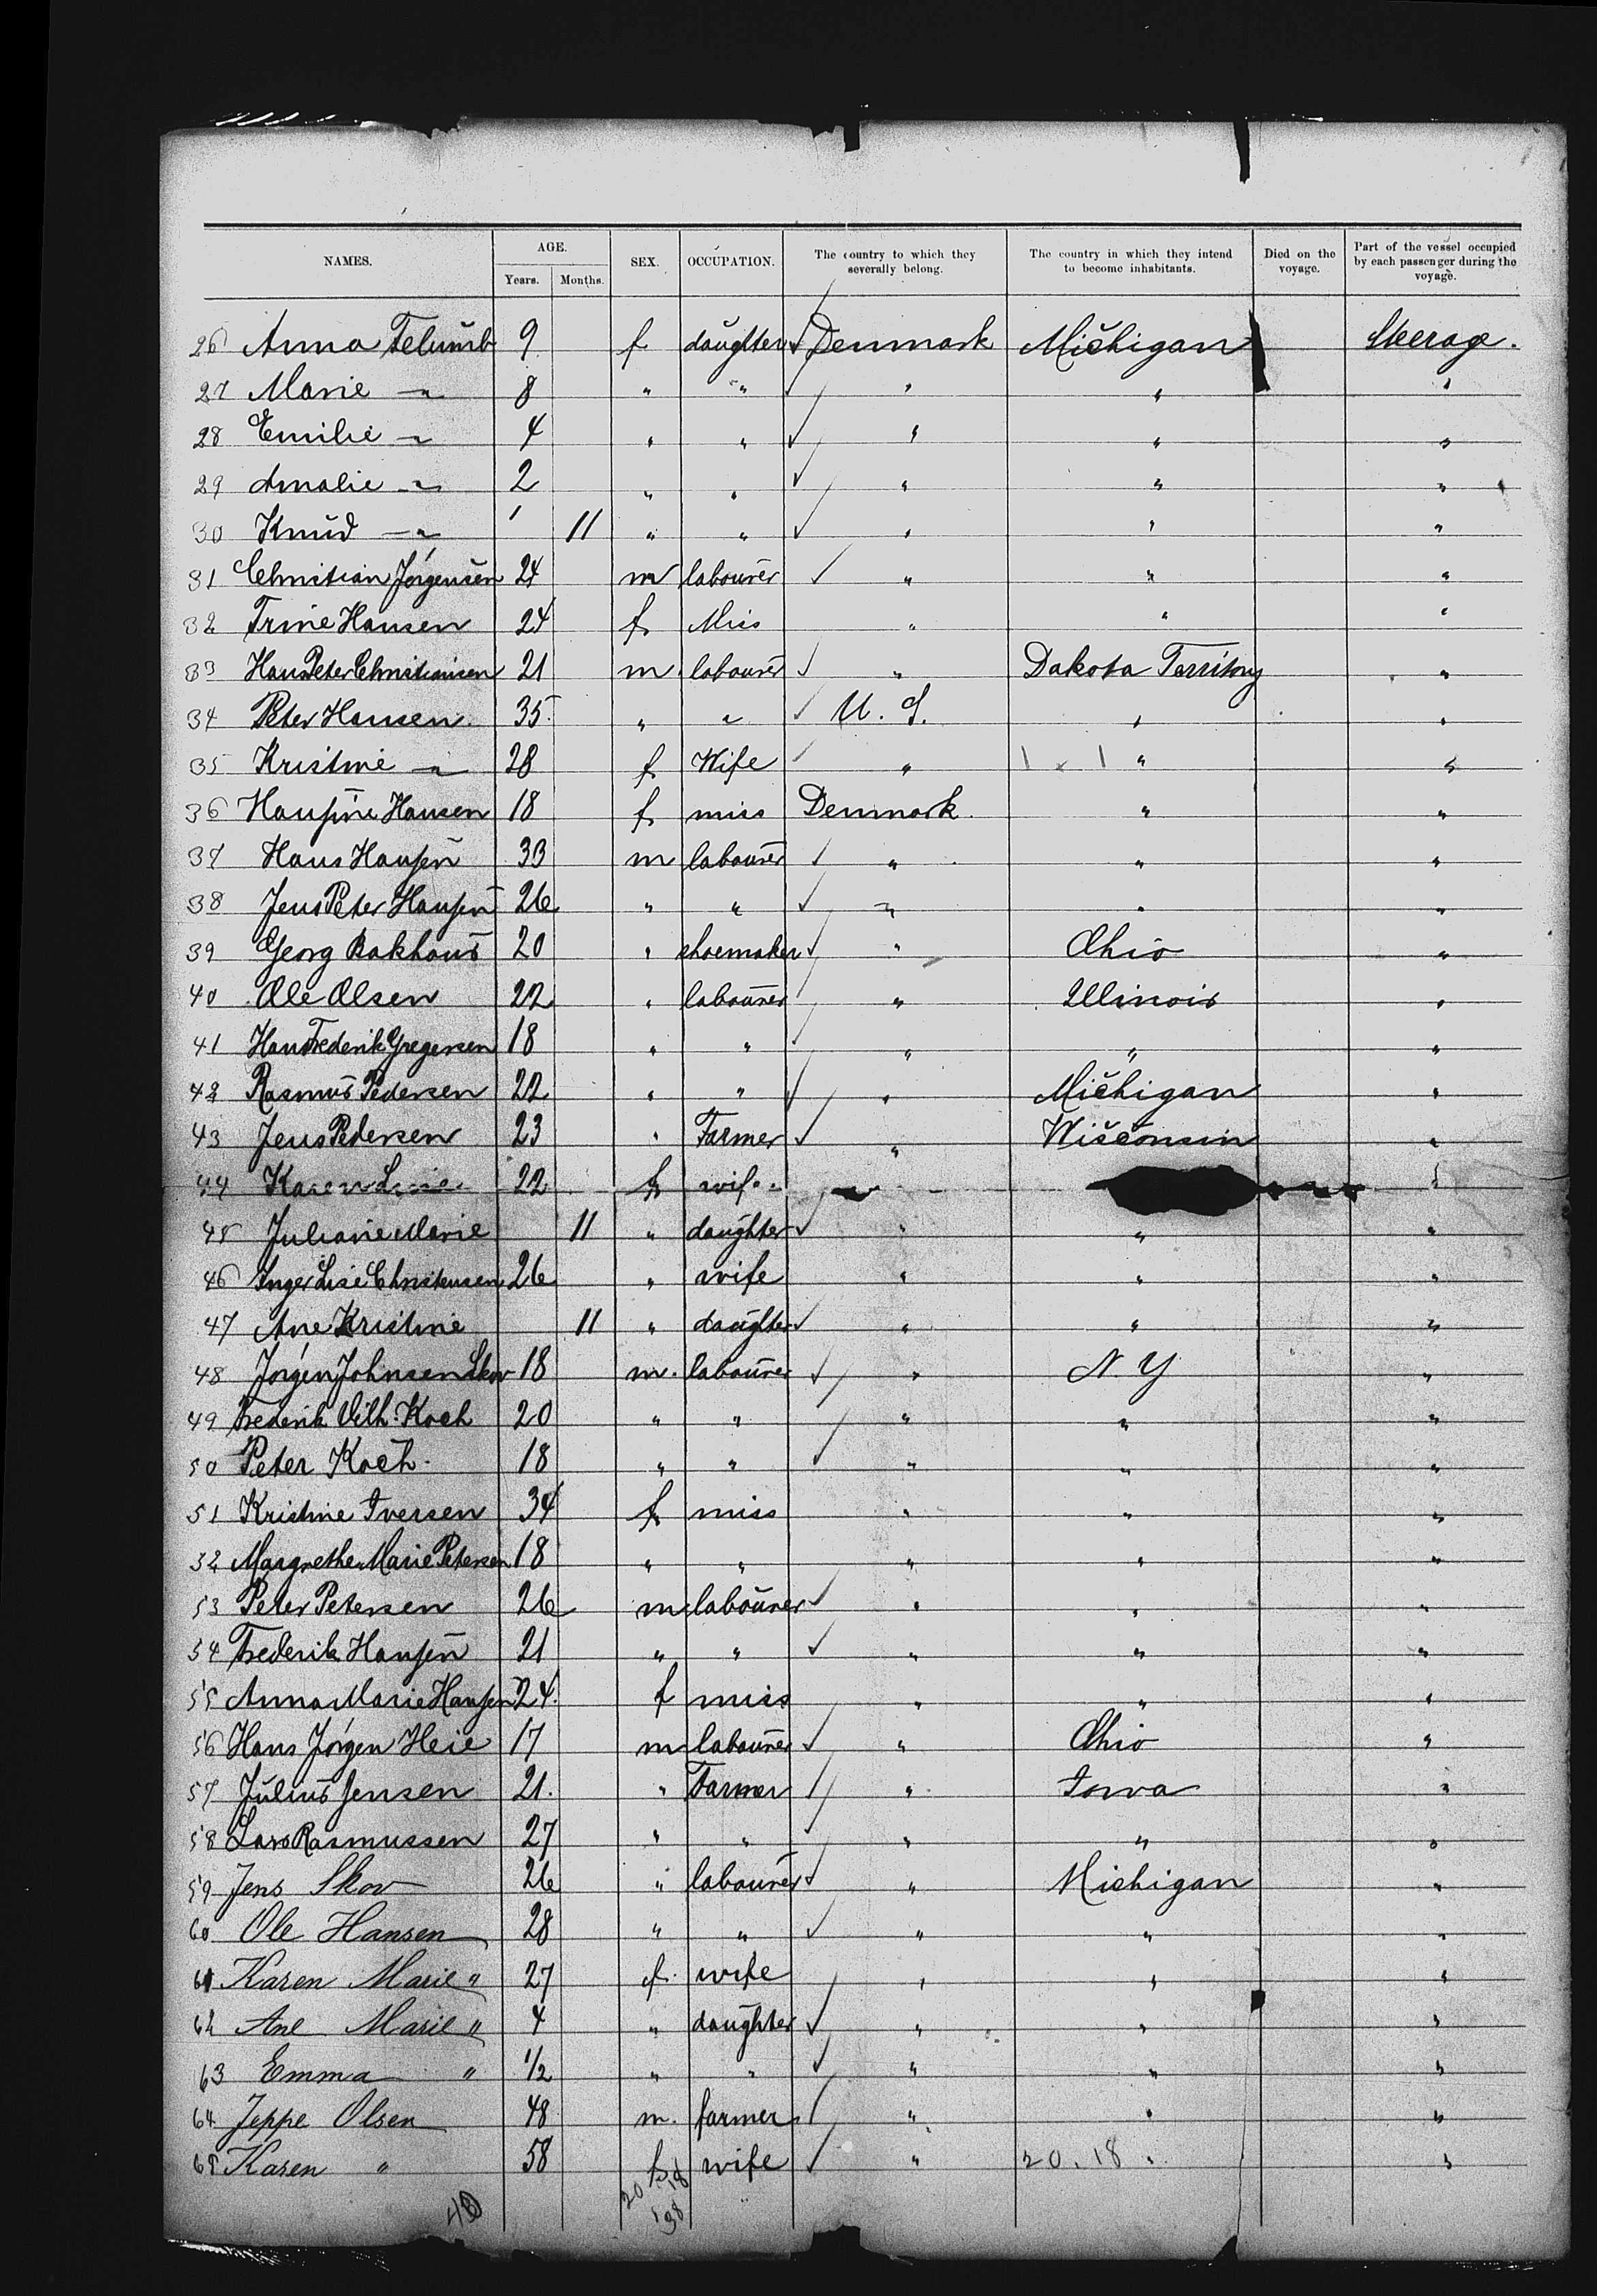 NAMES. AGE. Years. Months. SEX. OCCUPATION. The country to which they severally belong. The country in which they intend to become inhabitants. Died on the voyage. Part of the vessel occupied by each passenger during the voyage.
26 Anna 9 f daughter Denmark Michigan Steerage.
27 Marie " 8 " " " " "
28 Emilie " 4 " " " " "
29 Amalie " 2 " " " " "
30 Knud " 11 " " " " "
31 Christian Jörgensen 24 m labourer " " "
32 Trine Hansen 24 f Miss " " "
33 Hans Peter Christiansen 21 m. labourer " Dakota Territory "
34 Peter Hansen. 35. " " U. S. " "
35 Kristine " 28 f Wife " " "
36 Hansine Hansen 18 f miss Denmark. " "
37 Hans Hansen 33 m labourer " " "
38 Jens Peter Hansen 26 " " " " "
39 Georg Bakhaus 20 " shoemaker " Ohio "
40 Ole Olsen 22 " labourer " Illinois "
41 Hans Frederik Gregersen 18 " " " " "
42 Rasmus Pedersen 22 " " " Michigan "
43 Jens Pedersen 23 " Farmer " Wisconsin "
44 Karen 22 f wife "
45 Juliane Marie 11 " daughter " " "
46 Inger Lise Christensen 26 " wife " " "
47 Ane Kristine 11 " daughter " " "
48 Jörgen Johnsen Skov 18 m. labourer " N. Y "
49 Frederik Vilh. Koch 20 " " " " "
50 Peter Koch. 18 " " " " "
51 Kristine Iversen 34 f miss " " "
52 Margrethe Marie Petersen 18 " " " " "
53 Peter Petersen 26 m labourer " " "
54 Frederik Hansen 21 " " " " "
55 Anna Marie Hansen 24. f miss " " "
56 Hans Jörgen Heie 17 m labourer " Ohio "
57 Julius Jensen 21. " Farmer " Iowa "
58 Lars Rasmussen 27 " " " " "
59 Jens Skov 26 " labourer " Michigan "
60 Ole Hansen 28 " " " " "
61 Karen Marie " 27 f. wife " " "
62 Ane Marie " 4 " daughter " " "
63 Emma " 1/2 " " " " "
64 Jeppe Olsen 48 m. farmer " " "
65 Karen " 58 f wife " 20. 18 " "
40 20 18
38